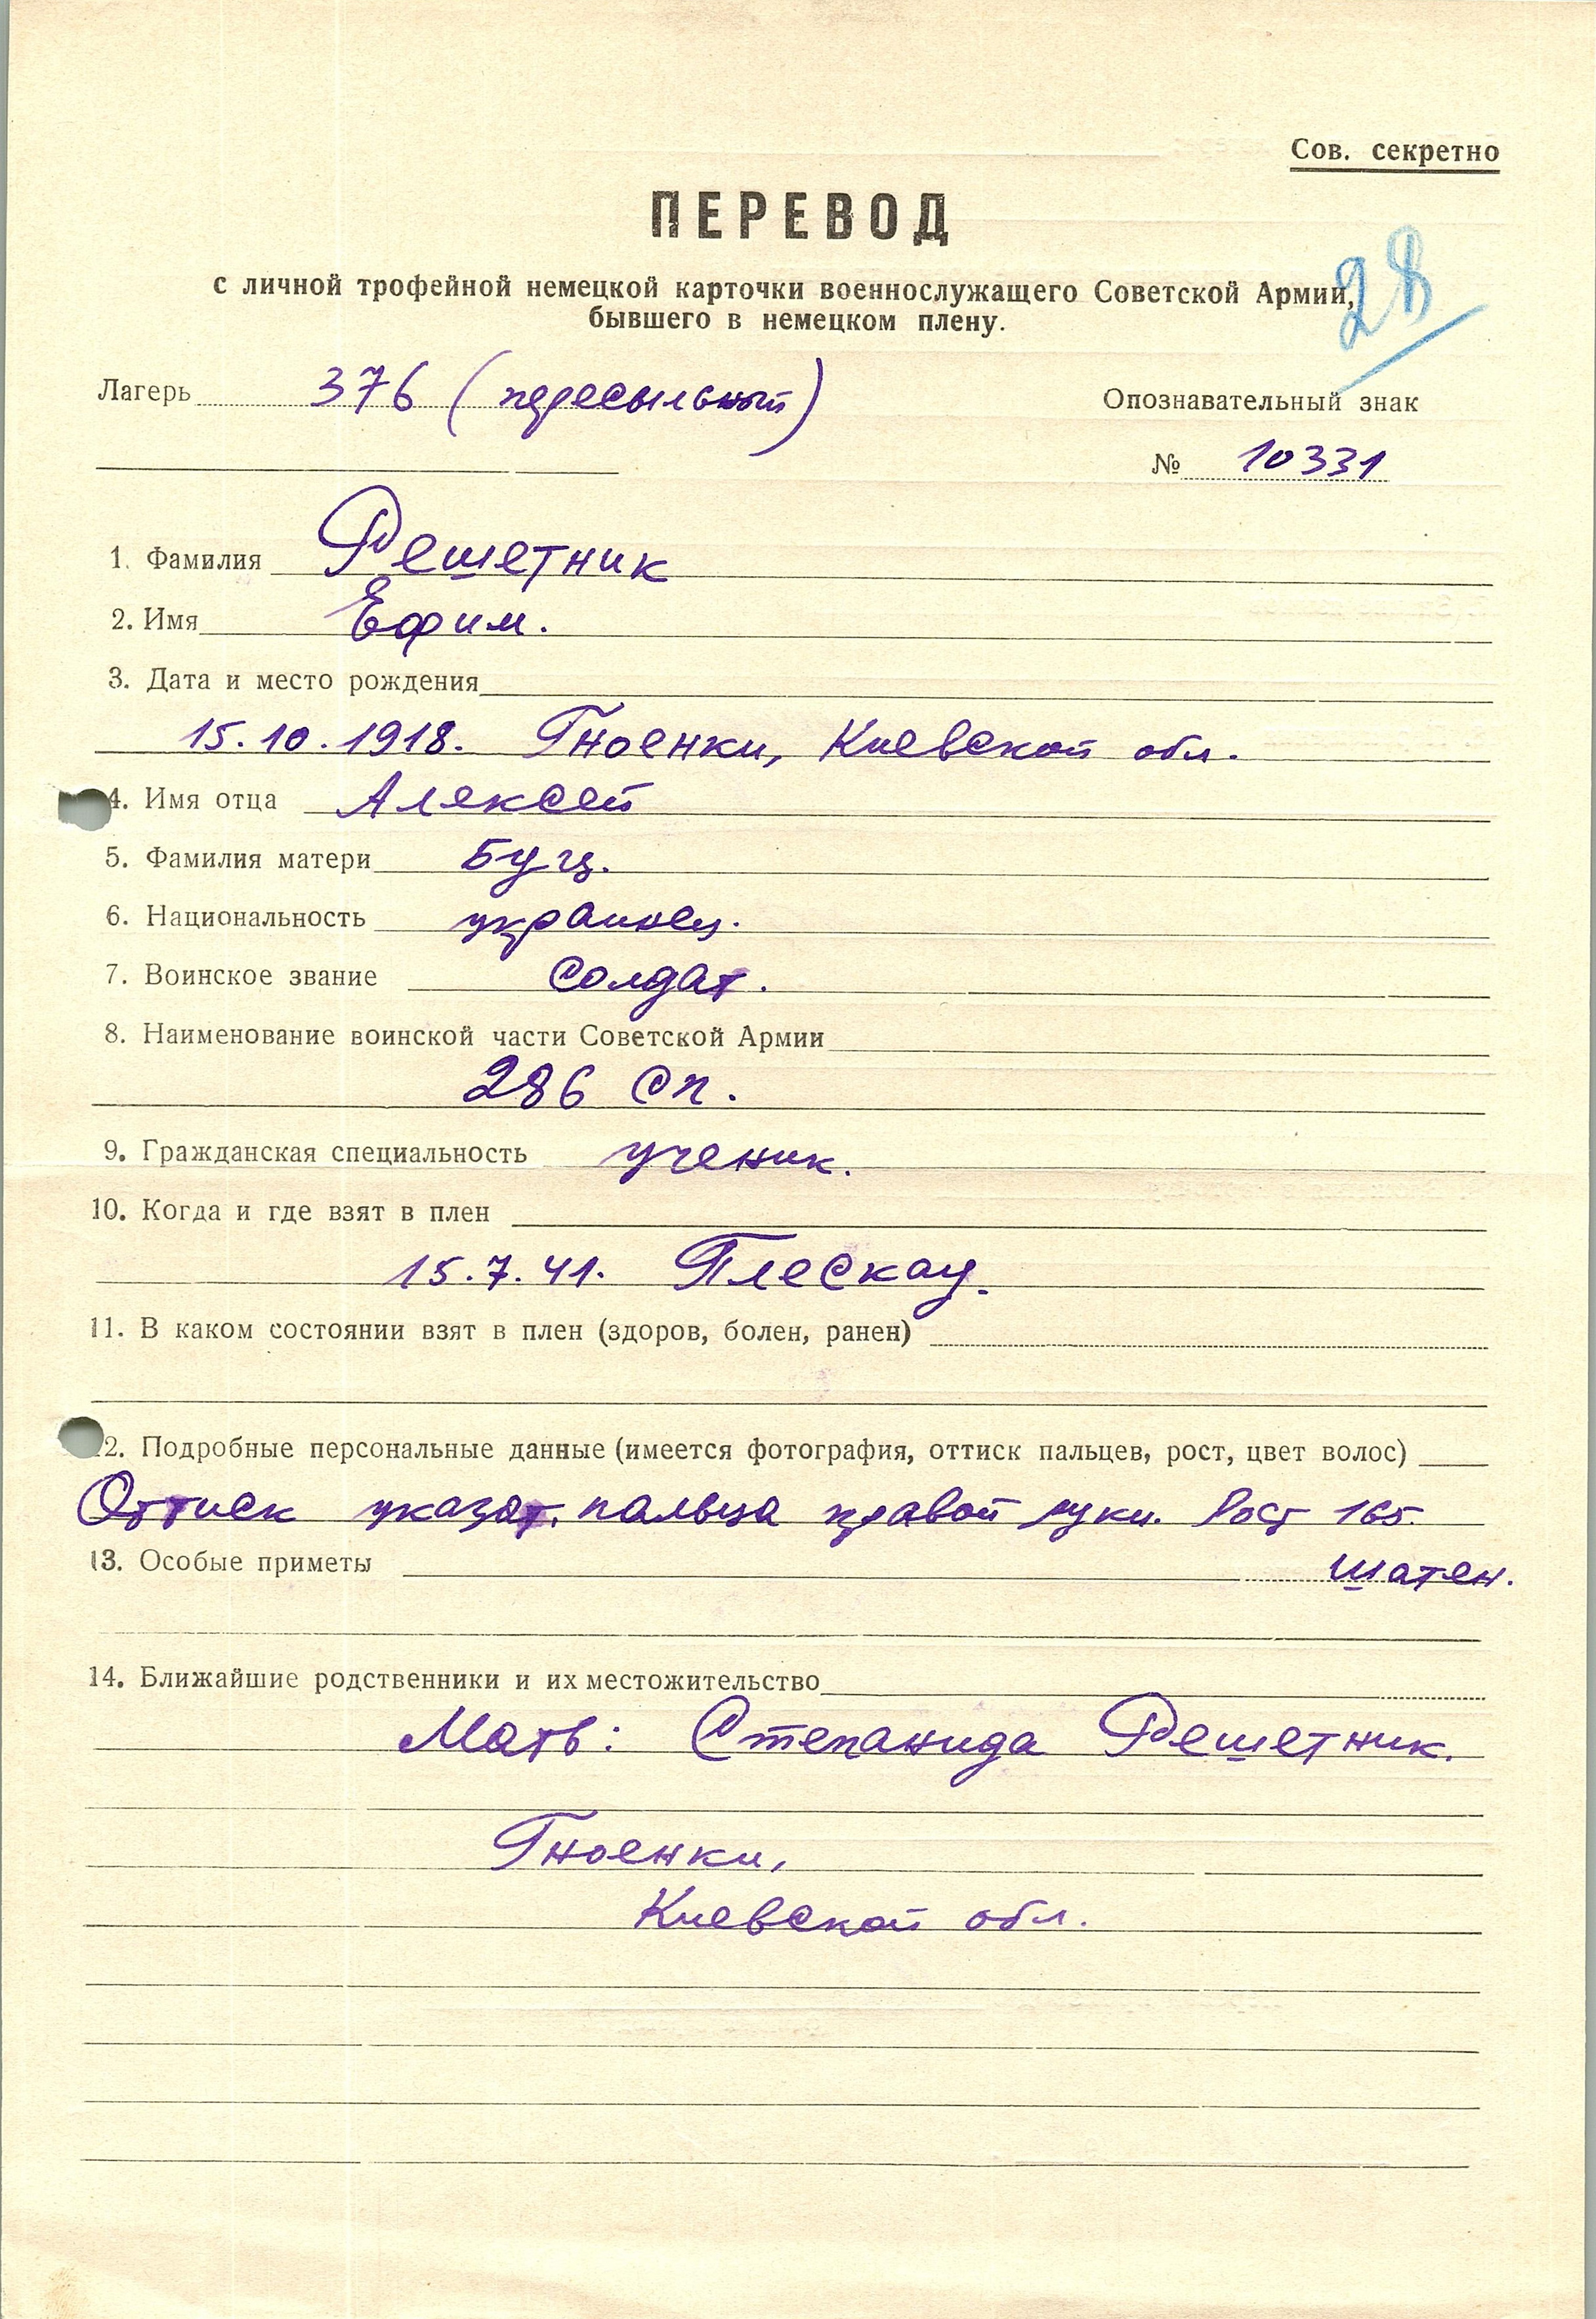 Сов. секретно
ПЕРЕВОД
28
с личной трофейной немецкой карточки военнослужащего Советской Армии,
бывшего в немецком плену.
Лагерь 376 (пересыльный)
Опознавательный знак
№ 10331
1. Фамилия Решетник
2. Имя Ефим.
3. Дата и место рождения
15.10.1918. Гноенки, Киевской обл.
4. Имя отца Алексей
5. Фамилия матери
6. Национальность украинец.
7. Воинское звание солдат.
8. Наименование воинской части Советской Армии
286 сп.
9. Гражданская специальность ученик.
10. Когда и где взят в плен
15.7.41. Плескау.
11. В каком состоянии взят в плен (здоров, болен, ранен)
12. Подробные персональные данные (имеется фотография, оттиск пальцев, рост, цвет волос)
Оттиск указат. пальца правой руки. Рост 165.
шатен.
13. Особые приметы
14. Ближайшие родственники и их местожительство
Мать: Степанида Решетник.
Гноенки,
Киевской обл.